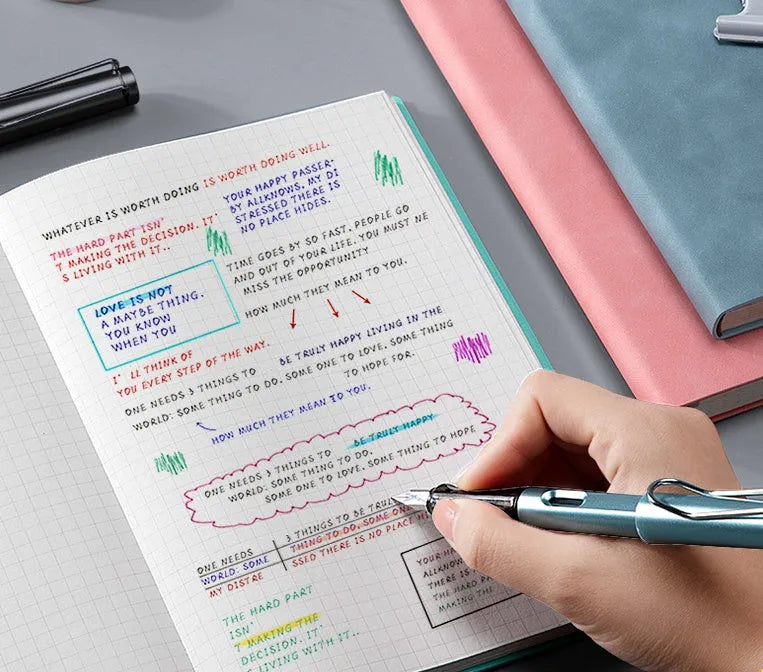 WHATEVER IS WORTH DOING IS WORTH DOING WELL.
THE HARD PART ISN'
T MAKING THE DECISION. IT'
S LIVING WITH IT..
YOUR HAPPY PASSER-
BY ALLKNOWS, MY DI
STRESSED THERE IS
NO PLACE HIDES.
TIME GOES BY SO FAST, PEOPLE GO
AND OUT OF YOUR LIFE. YOU MUST NE
MISS THE OPPORTUNITY
HOW MUCH THEY MEAN TO YOU.
LOVE IS NOT
A MAYBE THING.
YOU KNOW
WHEN YOU
I' LL THINK OF
YOU EVERY STEP OF THE WAY.
BE TRULY HAPPY LIVING IN THE
ONE NEEDS 3 THINGS TO
WORLD: SOME THING TO DO, SOME ONE TO LOVE, SOME THING
TO HOPE FOR.
HOW MUCH THEY MEAN TO YOU.
ONE NEEDS 3 THINGS TO BE TRULY HAPPY
WORLD: SOME THING TO DO,
SOME ONE TO LOVE, SOME THING TO HOPE
ONE NEEDS 3 THINGS TO BE TRUL
WORLD: SOME THING TO DO, SOME ON
MY DISTRE SSED THERE IS NO PLACE H
YOUR HA
ALLKNOW
THERE IS
THE HARD PA
MAKING THE
THE HARD PART
ISN'
T MAKING THE
DECISION. IT'
S LIVING WITH IT..